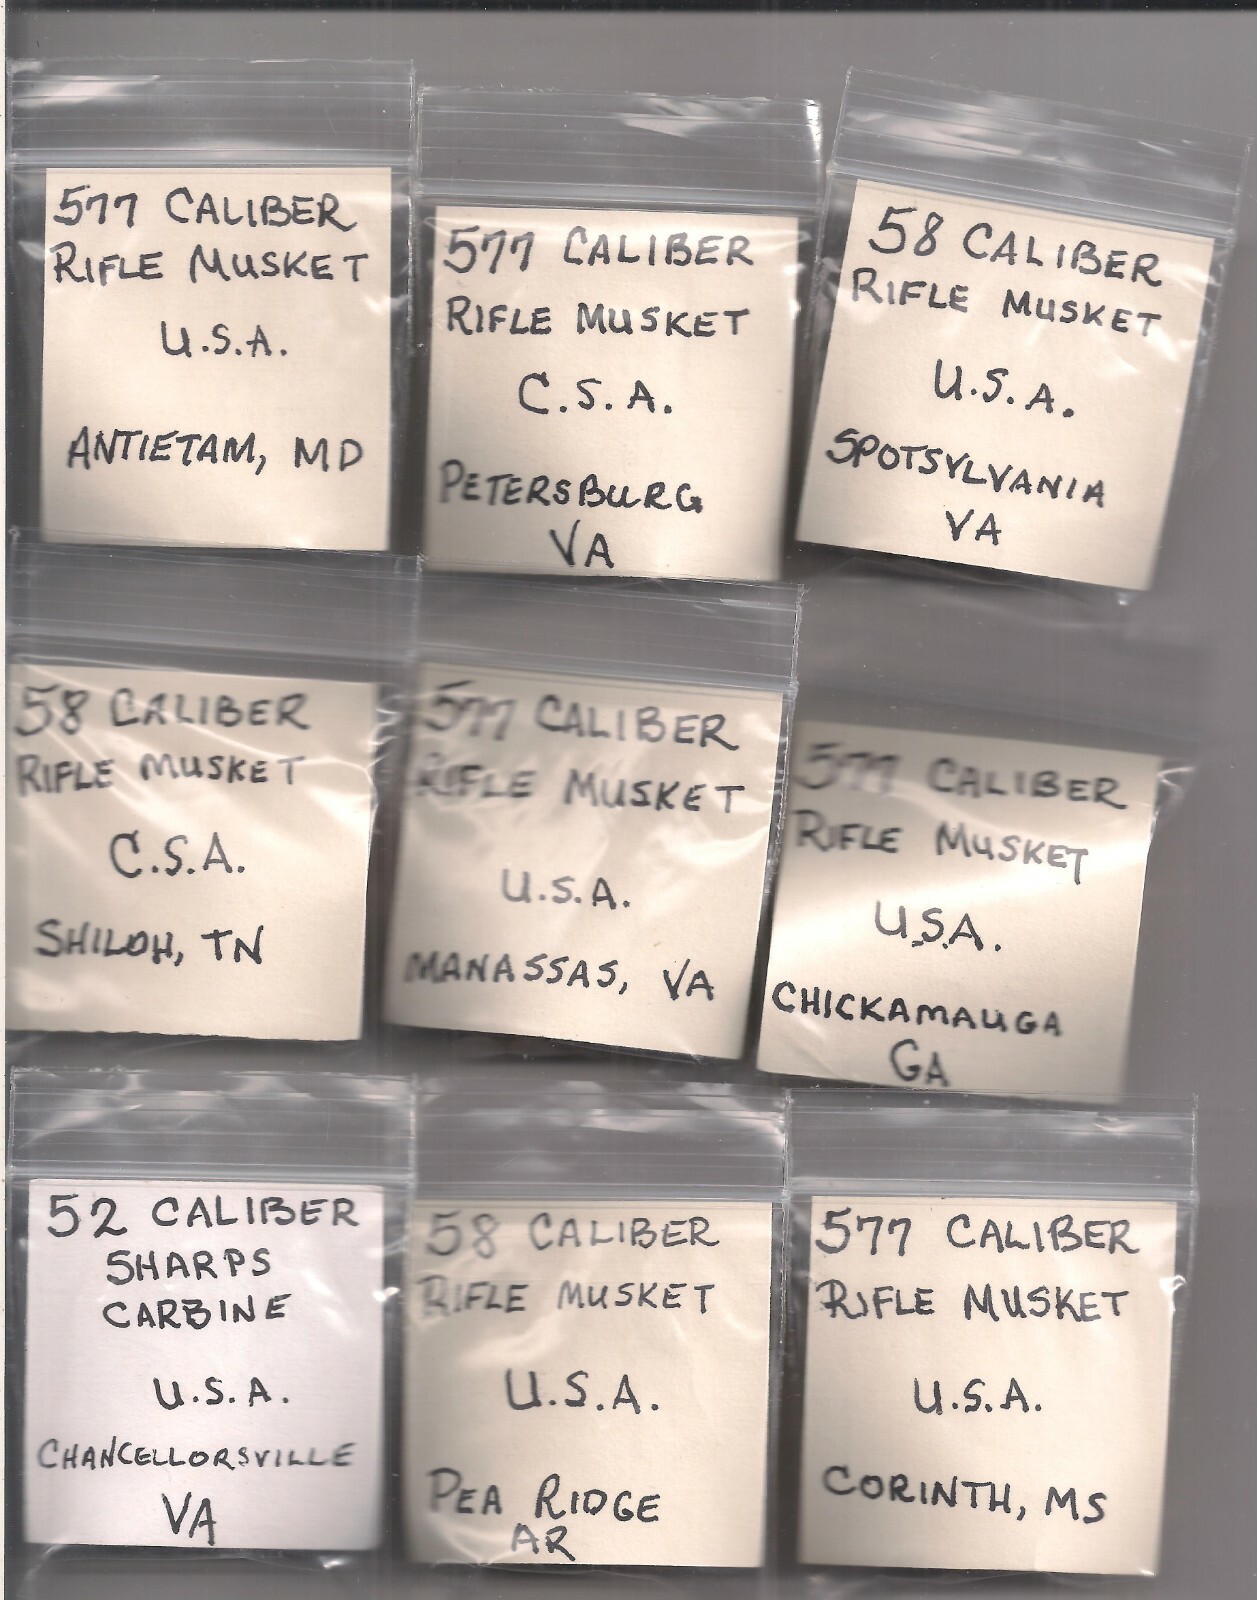 577 CALIBER
RIFLE MUSKET
U.S.A.
ANTIETAM, MD
577 CALIBER
RIFLE MUSKET
C.S.A.
PETERSBURG
VA
58 CALIBER
RIFLE MUSKET
U.S.A.
SPOTSYLVANIA
VA
58 CALIBER
RIFLE MUSKET
C.S.A.
SHILOH, TN
577 CALIBER
RIFLE MUSKET
U.S.A.
MANASSAS, VA
577 CALIBER
RIFLE MUSKET
U.S.A.
CHICKAMAUGA
GA
52 CALIBER
SHARPS
CARBINE
U.S.A.
CHANCELLORSVILLE
VA
58 CALIBER
RIFLE MUSKET
U.S.A.
PEA RIDGE
AR
577 CALIBER
RIFLE MUSKET
U.S.A.
CORINTH, MS